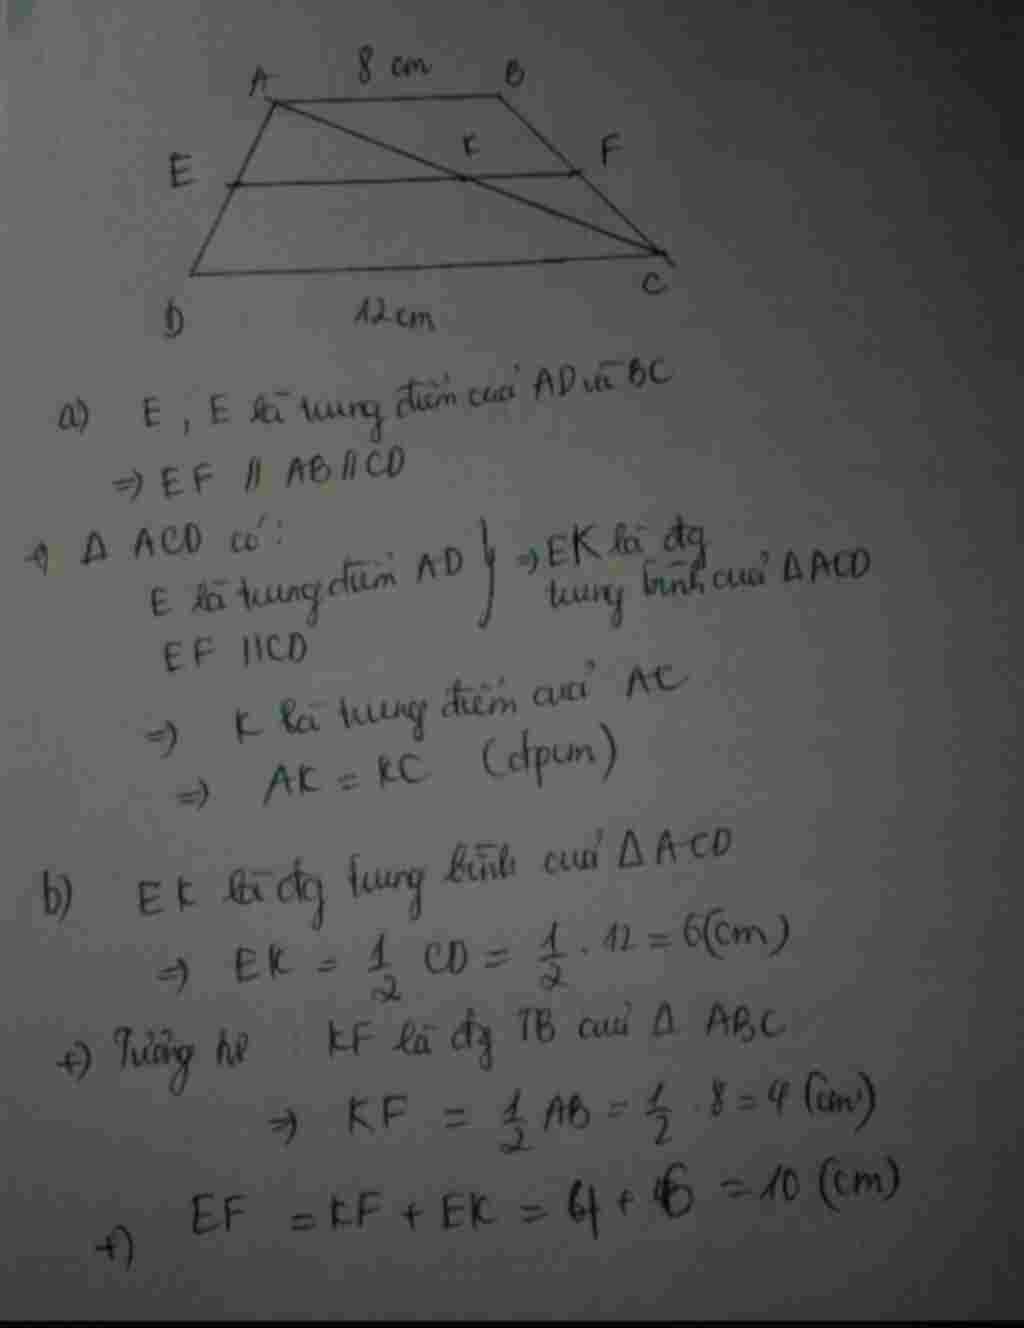 8 cm
A B
E K F
D C
12cm
a) E, E là trung điểm của AD và BC
=> EF // AB // CD
Δ ACD có:
E là trung điểm AD } => EK là đg
trung bình của ΔACD
EF // CD
=> K là trung điểm của AC
=> AK = KC (đpcm)
b) EK là đg trung bình của ΔACD
=> EK = 1/2 CD = 1/2 . 12 = 6(cm)
+) Tương tự KF là đg TB của Δ ABC
=> KF = 1/2 AB = 1/2 . 8 = 4 (cm)
+) EF = KF + EK = 4 + 6 = 10 (cm)